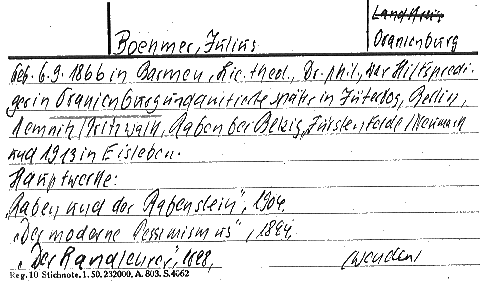 Landkreis
Boehmer, Julius Oranienburg
geb. 6.9.1866 in Barmen, Lic. theol., Dr. phil., war Hilfspredi-
ger in Oranienburg und amtierte später in Jüterbog, Berlin,
Raben bei Belzig, Fürstenfelde/Neumark
und 1913 in Eisleben.
Hauptwerke:
Raben und der Rabenstein", 1904.
"Der moderne Pessimismus", 1894.
"Der Randlehrer", 1898, (wenden)
Reg. 10 Stichnote. 1. 50. 232000. A. 803. S. 4662